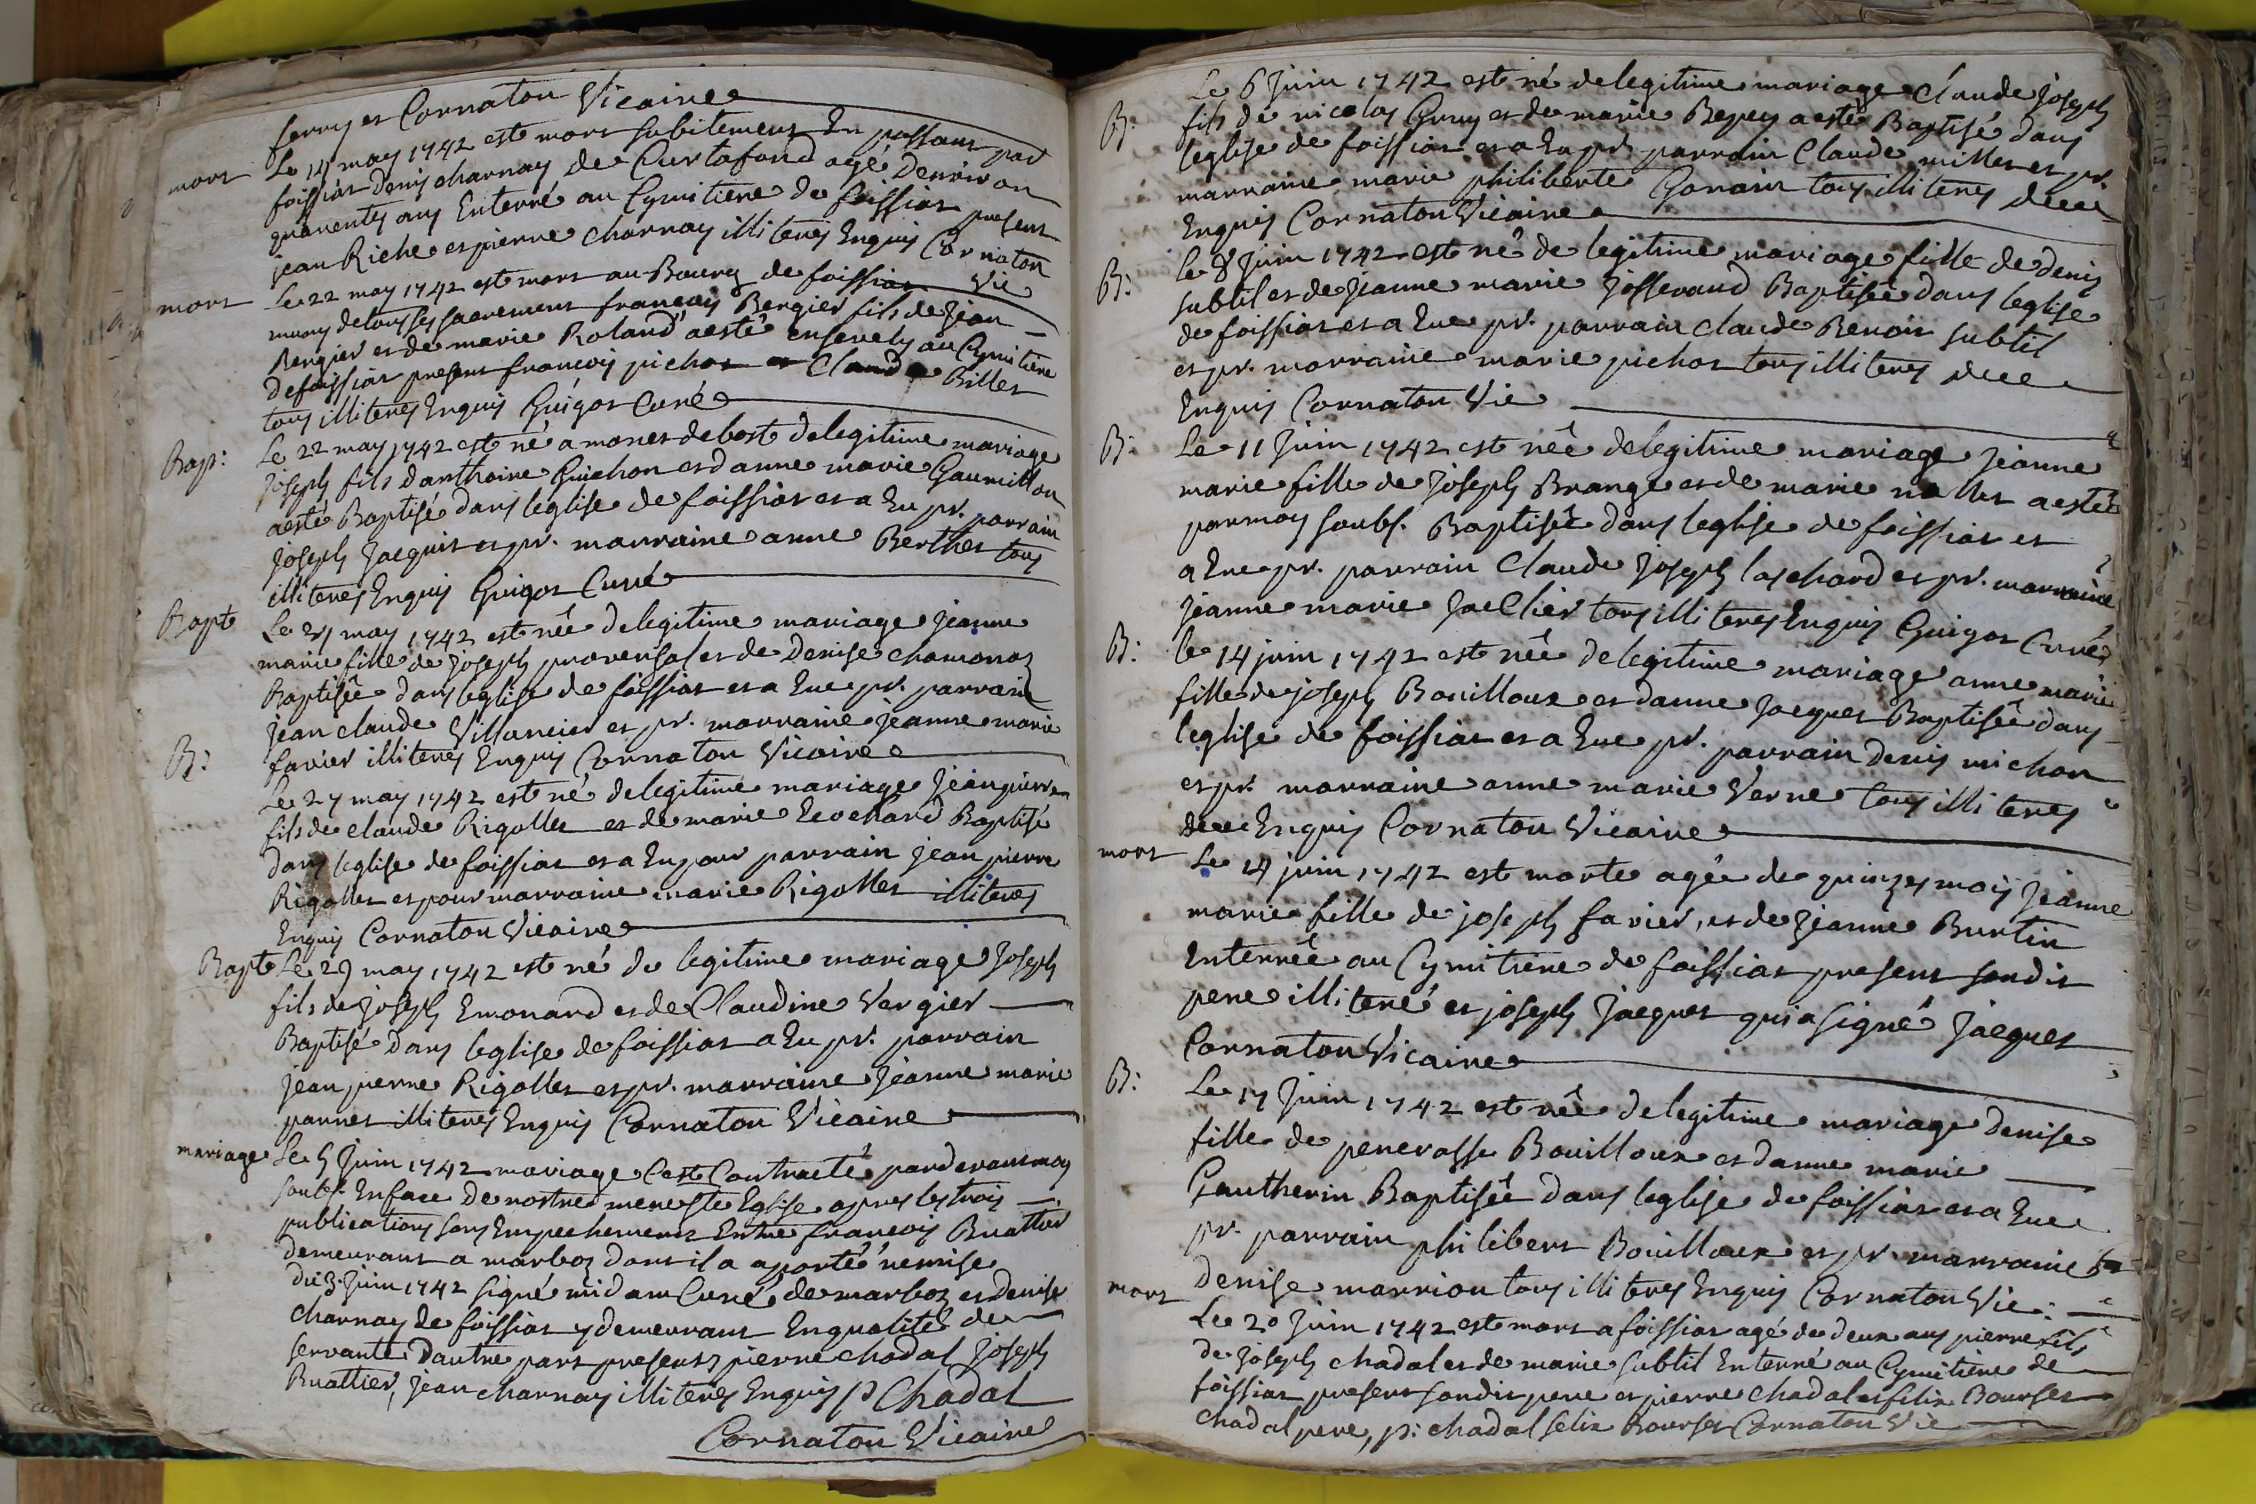 ferry et Cornaton Vicaire
mort Le 14 may 1742 est mort subitement En passant par
foissiat denis charnay de Curtafond agé Denviron
quarente ans Enterré au Cymitiere de foissiat present
jean Riche et pierre charnay illiterés Enquis Cornaton
Vic
mort Le 22 may 1742 est mort au Bourg de foissiat
muny de tous ses sacrement francois Bergier fils de Jean
Bergier et de marie Roland a esté ensevely au Cymitiere
de foissiat present francois pichot et Claude Billet
tous illiterés Enquis Guigot Curé
Bap: Le 22 may 1742 est né a monet debost de legitime mariage
joseph fils danthoine Guichon et danne marie Gaumillon
a esté Baptisé dans leglise de foissiat et a Eu pr. parrain
joseph Jacquet et pr. marraine anne Berthet tous
illiterés Enquis Guigot Curé
Bapt Le 24 may 1742 est née de legitime mariage jeanne
marie fille de joseph provensal et de Denise chamonoz
Baptisée dans leglise de foissiat et a Eue pr. parrain
jean claude Villancier et pr. marraine jeanne marie
favier illiterés Enquis Cornaton Vicaire
B: Le 27 may 1742 est né de legitime mariage Jean pierre
fils de claude Rigollet et de marie Ecochard Baptisé
dans leglise de foissiat et a Eu pour parrain jean pierre
Rigollet et pour marraine marie Rigollet illiterés
Enquis Cornaton Vicaire
Bapt Le 29 may 1742 est né de legitime mariage Joseph
fils de joseph Emonard et de Claudine Vergier
Baptisé dans leglise de foissiat a Eu pr. parrain
jean pierre Rigollet et pr. marraine Jeanne marie
pannet illiterés Enquis Cornaton Vicaire
mariage Le 5 Juin 1742 mariage cest Contracté pardevant moy
soubs. En face de nostre mere ste Eglise apres les trois
publications sans Empechement Entre francois Buattier
demeurant a marboz dont il a aporté remise
du 3. Juin 1742 signé midam Curé de marboz et Denise
charnay de foissiat y demeurant En qualité de
servante Dautre part presents pierre chadal Joseph
Buattier, jean charnay illiterés Enquis P Chadal
Cornaton Vicaire
Le 6 Juin 1742 est né de legitime mariage claude Joseph
B: fils de nicolas Gruy et de marie Bepey a esté Baptisé dans
leglise de foissiat et a Eu pr. parrain Claude millet et pr.
marraine marie philiberte Gonain tous illiterés
Enquis Cornaton Vicaire
B: le 8 Juin 1742 est né de legitime mariage fille de denis
subtil et de Jeanne marie Josserand Baptisée dans leglise
de foissiat et a Eue pr. parrain claude Benoit subtil
et pr. marraine marie pichot tous illiterés
Enquis Cornaton Vic
B: Le 11 Juin 1742 est née de legitime mariage jeanne
marie fille de joseph Brange et de marie nallet a esté
par moy soubs. Baptisée dans leglise de foissiat et
a Eue pr. parrain Claude Joseph laschard et pr. marraine
Jeanne marie Jacllier tous illiterés Enquis Guigot Curé
B: le 14 juin 1742 est née de legitime mariage anne marie
fille de joseph Bouilloux et danne jacquet Baptisée dans
leglise de foissiat et a Eue pr. parrain denis michon
et pr. marraine anne marie Verne tous illiterés
Enquis Cornaton Vicaire
mort Le 14 juin 1742 est morte agée de quinzes mois Jeanne
marie fille de joseph favier, et de jeanne Burtin
Enterrée au Cymitiere de foissiat present sondit
pere illiteré et joseph jacquet qui a signé Jacquet
Cornaton Vicaire
B: Le 17 Juin 1742 est née de legitime mariage denise
fille de Bouilloux et danne marie
Gautherin Baptisée dans leglise de foissiat et a Eue
pr. parrain philibert Bouilloux et pr. marraine
denise marrion tous illiterés Enquis Cornaton Vic.
mort Le 20 Juin 1742 est mort a foissiat agé de deux ans pierre fils
de Joseph chadal et de marie subtil Enterré au Cymitiere de
foissiat present sondit pere et pierre chadal et felix Bourset
chadal pere, p: chadal felix Bourset Cornaton Vic